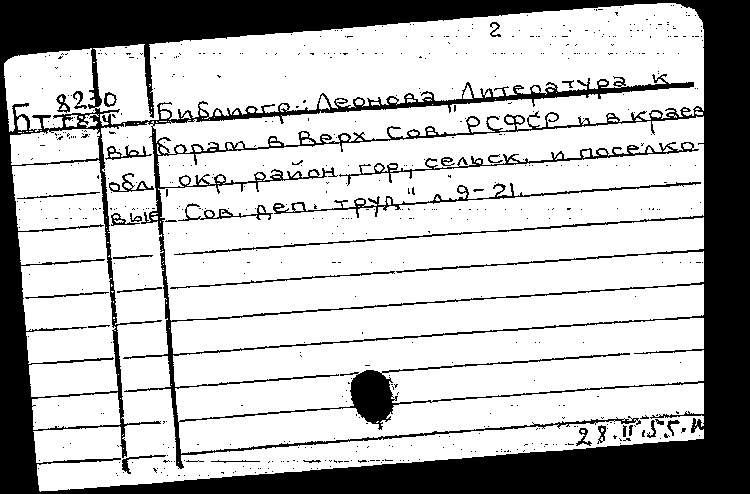 2
Бт 8230
Библиогр.: Леонова "Литература к
выборам в Верх Сов. РСФСР и в краев
обл., окр., район, гор., сельск. и поселко-
вые Сов. деп. труд." л. 9-21.
28.II.55.